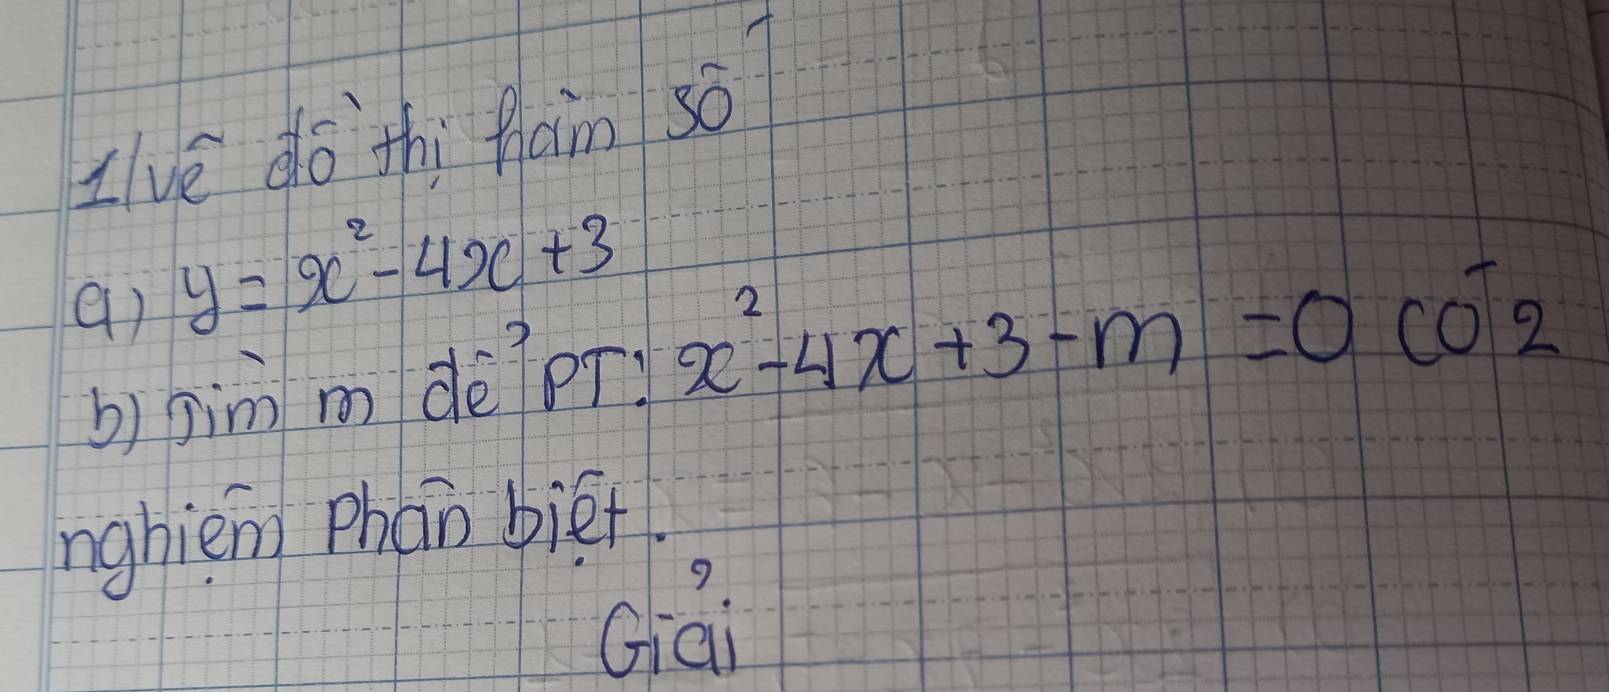 1/ vẽ đồ thị hàm số
a) y = x² - 4x + 3
b) Tìm m để PT: x² - 4x + 3 - m = 0 có 2
nghiệm phân biệt.
Giải